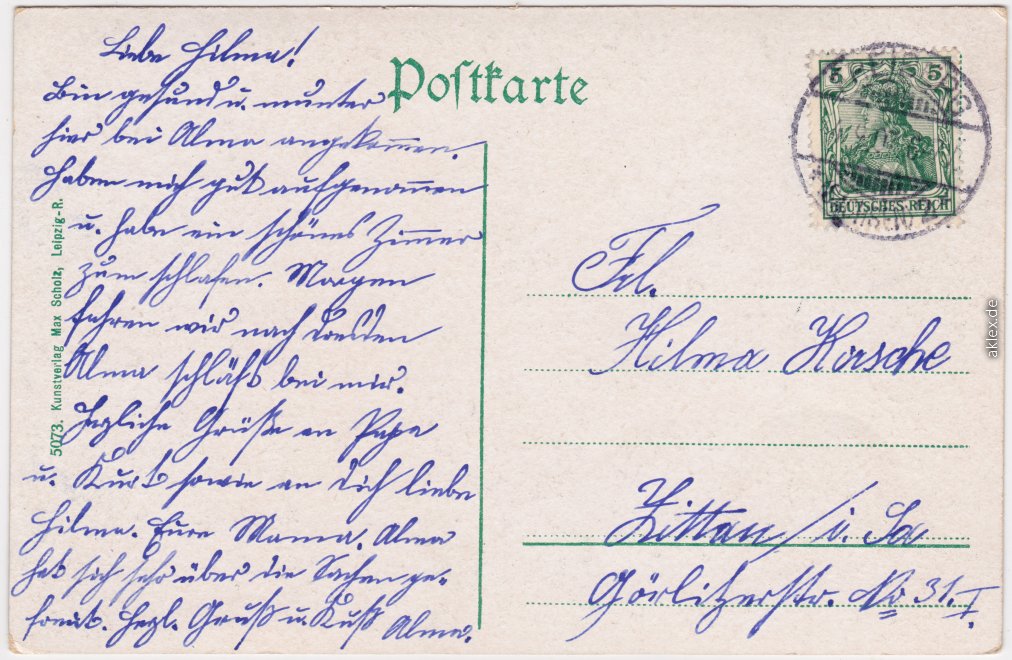 Liebe Hilma!
Bin gesund u. munter
hier bei Alma angekommen.
Haben mich gut aufgenommen
u. habe ein schönes Zimmer
zum schlafen. Morgen
fahren wir nach Dresden
Alma schläft bei mir.
Herzliche Grüße an Papa
u. Kurt sowie an Dich liebe
Hilma. Eure Mama. Alma
hat sich sehr über die Sachen ge-
freut. Herzl. Gruß u. Kuß Alma.
Postkarte
5 5
DEUTSCHES REICH
Frl.
Hilma Korsche
Zittau / i. Sa
Görlitzerstr. No 31. I.
5073. Kunstverlag Max Scholz, Leipzig-R.
aklex.de